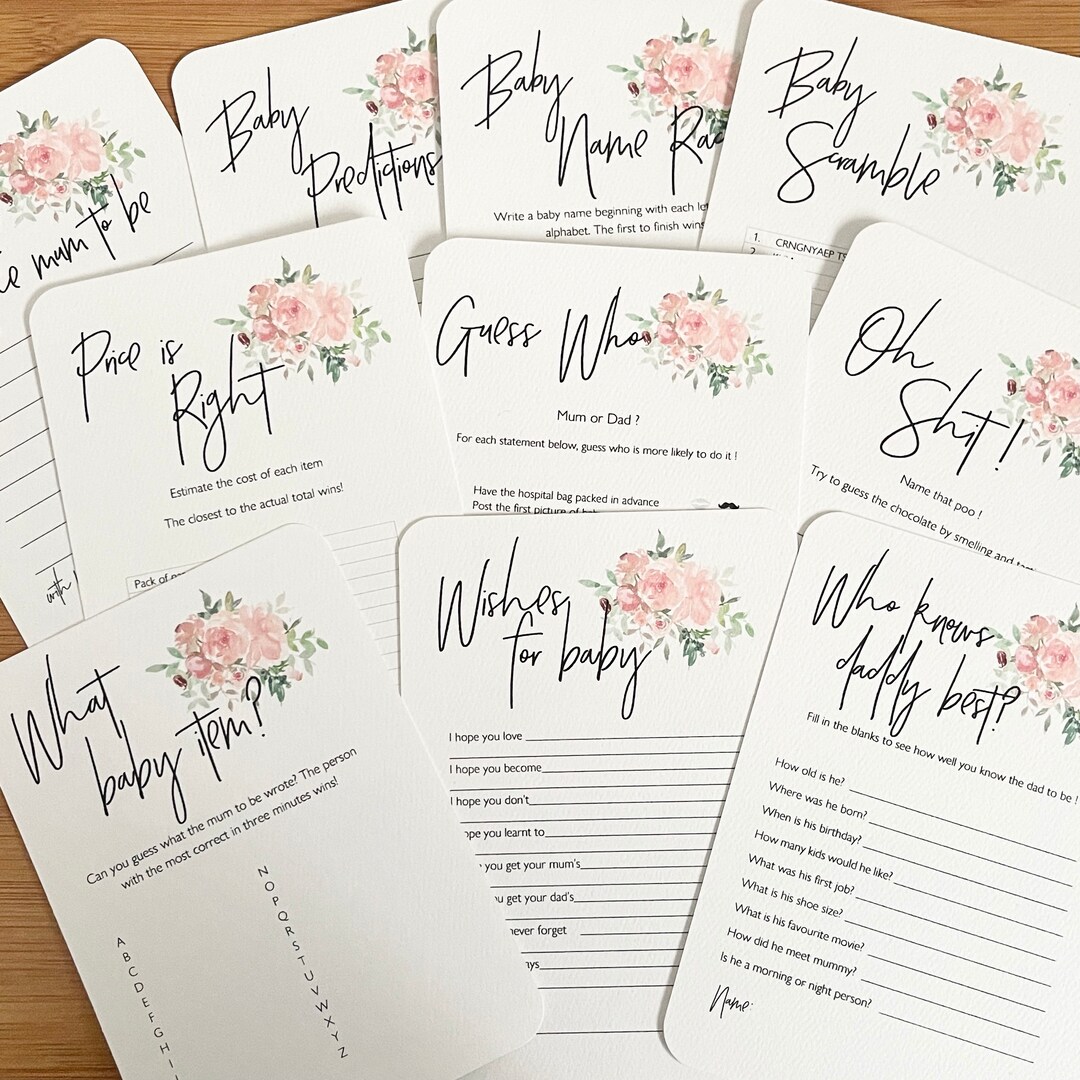 mum to be
with
Baby
Predictions
Baby
Name
Write a baby name beginning with each
alphabet. The first to finish wins
Baby
Scramble
1. CRNGNYAEP
2.
Price is
Right
Estimate the cost of each item
The closest to the actual total wins!
Pack of
Guess Who
Mum or Dad ?
For each statement below, guess who is more likely to do it !
Have the hospital bag packed in advance
Post the first picture of
Oh
Shit !
Name that poo !
Try to guess the chocolate by smelling and
What
baby item?
Can you guess what the mum to be wrote? The person
with the most correct in three minutes wins!
A
B
C
D
E
F
G
H
I
N
O
P
Q
R
S
T
U
V
W
X
Y
Z
Wishes
for baby
I hope you love
I hope you become
I hope you don't
ope you learnt to
you get your mum's
u get your dad's
never forget
ys
Who knows
daddy best?
Fill in the blanks to see how well you know the dad to be !
How old is he?
Where was he born?
When is his birthday?
How many kids would he like?
What was his first job?
What is his shoe size?
What is his favourite movie?
How did he meet mummy?
Is he a morning or night person?
Name: